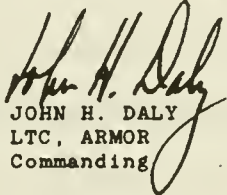 John H. Daly
JOHN H. DALY
LTC, ARMOR
Commanding